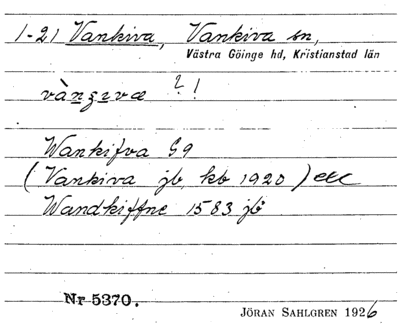 1-21 Vankiva, Vankiva sn,
Västra Göinge hd, Kristianstad län
vànʒɪvæ ?!
Wankifva G9
(Vankiva jb, kb 1920) etc
Wandkiffne 1583 jb
Nr 5370.
JÖRAN SAHLGREN 1926